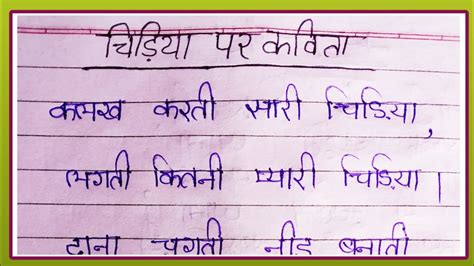 चिड़िया पर कविता
कलरव करती सारी चिड़िया,
लगती कितनी प्यारी चिड़िया।
दाना चुगती नीड़ बनाती